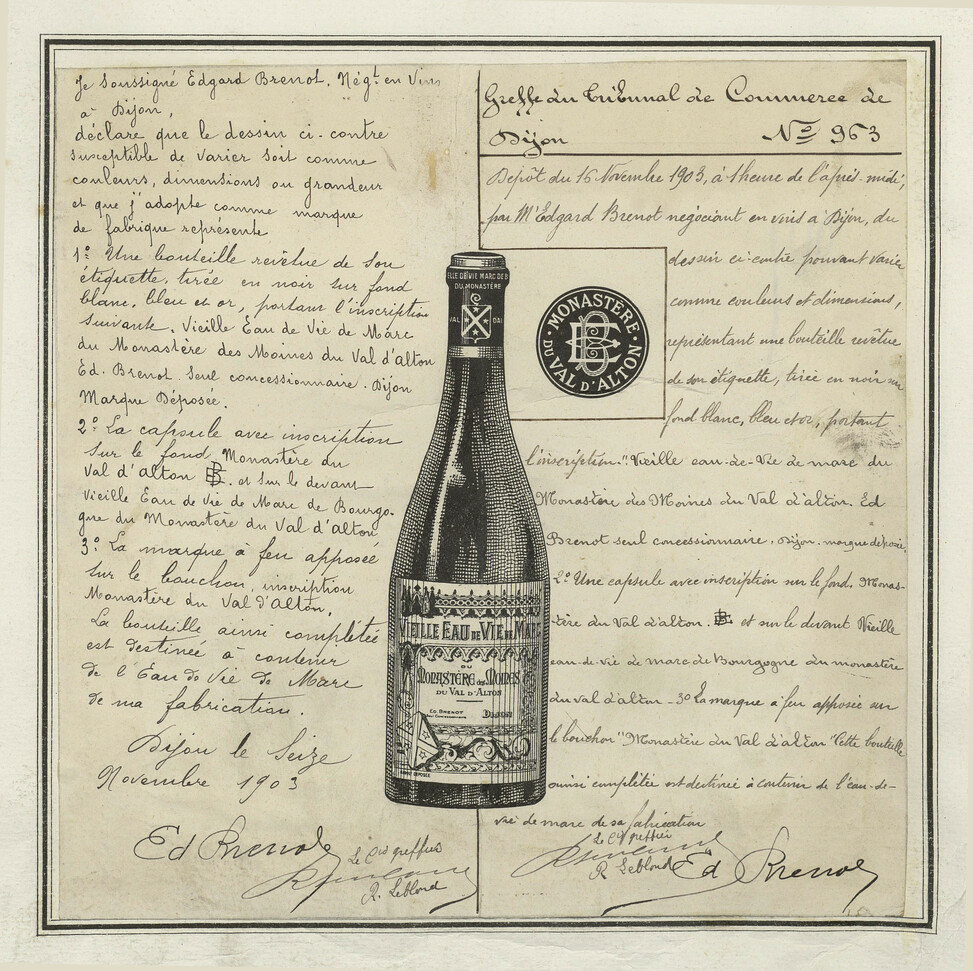 Je Soussigné Edgard Brenot, Négt en Vins
à Dijon,
déclare que le dessin ci-contre
susceptible de varier soit comme
couleurs, dimensions ou grandeur
et que j'adopte comme marque
de fabrique représente
1º Une bouteille revêtue de son
étiquette, tirée en noir sur fond
blanc, bleu et or, portant l'inscription
suivante. Vieille Eau de Vie de Marc
du Monastère des Moines du Val d'alton
Ed. Brenot. Seul concessionnaire. Dijon
Marque Déposée.
2º La capsule avec inscription
sur le fond Monastère du
Val d'alton EB. et sur le devant
Vieille Eau de Vie de Marc de Bourgo-
gne du Monastère du Val d'alton
3º La marque à feu apposée
sur le bouchon, inscription
Monastère du Val d'alton.
La bouteille ainsi complétée
est destinée à contenir
de l'Eau de Vie de Marc
de ma fabrication.
Dijon le Seize
Novembre 1903
Ed Brenot
Le Cis greffier
R. Leblond
Greffe du Tribunal de Commerce de
Dijon Nº 963
Dépôt du 16 Novembre 1903, à 1 heure de l'après-midi,
par Mr Edgard Brenot négociant en vins à Dijon, du
dessin ci-contre pouvant varier
comme couleurs et dimensions,
représentant une bouteille revêtue
de son étiquette, tirée en noir sur
fond blanc, bleu et or, portant
l'inscription: "Vieille eau-de-vie de marc du
Monastère des Moines du Val d'alton. Ed
Brenot seul concessionnaire. Dijon. marque déposée.
2º Une capsule avec inscription sur le fond. Monas-
tère du Val d'alton. EB et sur le devant Vieille
eau-de-vie de marc de Bourgogne du monastère
du val d'alton - 3º La marque à feu apposée sur
le bouchon "Monastère du Val d'alton" Cette bouteille
ainsi complétée est destinée à contenir de l'eau-de-
vie de marc de sa fabrication
Le Cis greffier
R Leblond
Ed Brenot
ELLE DE VIE MARC DE B
DU MONASTÈRE
VAL D'AL
MONASTÈRE
EB
DU VAL D'ALTON
VIEILLE EAU DE VIE DE MARC
DU
MONASTÈRE des MOINES
DU VAL D'ALTON
ED BRENOT
DIJON